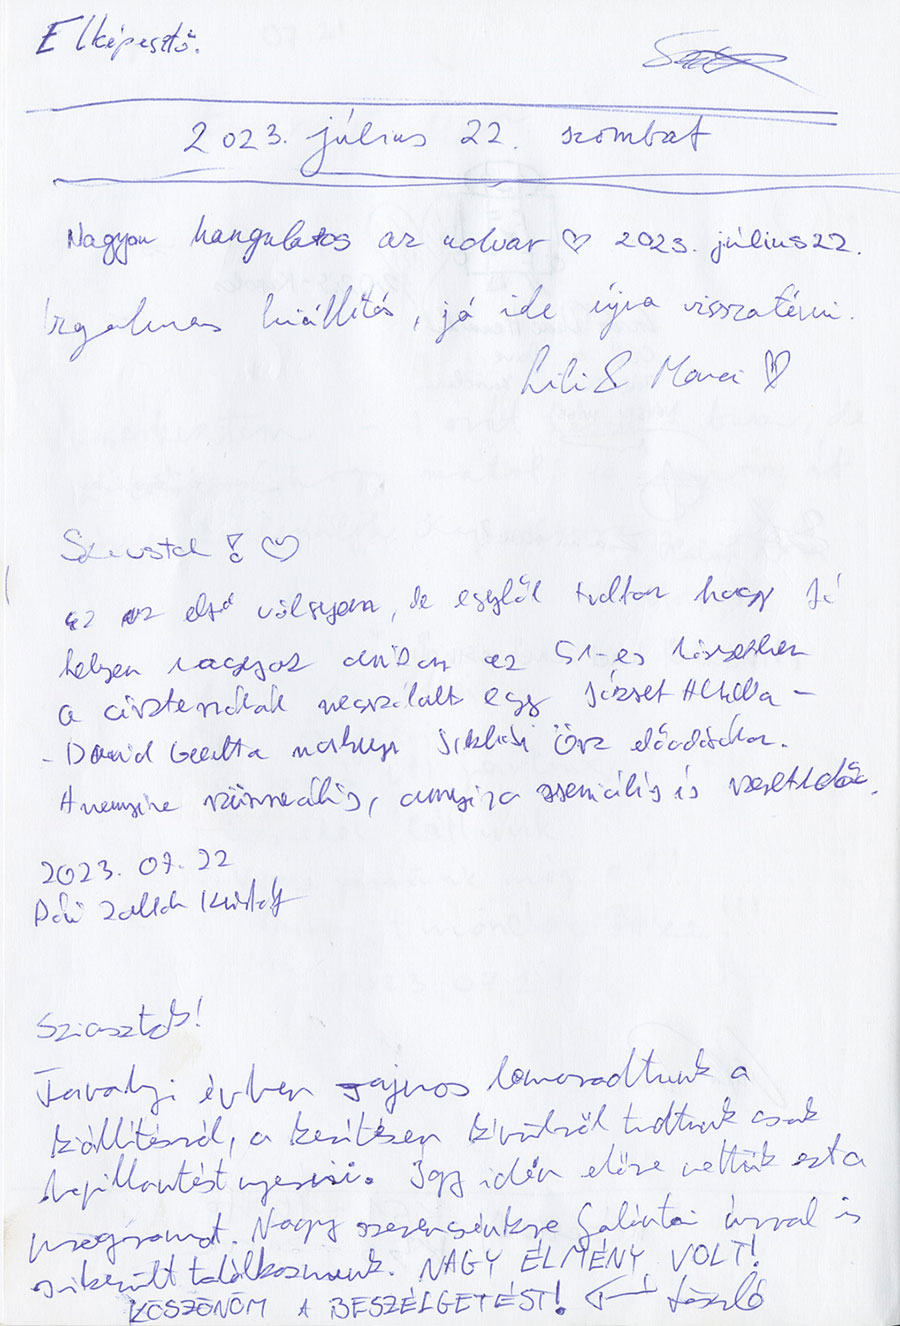 Elképesztő.
2023. július 22. szombat
Nagyon hangulatos az udvar ♡ 2023. július 22.
Izgalmas kiállítás, jó ide újra visszatérni.
Lili & Marci ♡
Sziasztok! ♡
ez az első völgyem, de egyből tudtam hogy jó
helyen vagyok amikor az 51-es körzetben
a ciszternákák megszólalt egy József Attila -
- David Guetta Siklósi Örs előadásába.
Amennyire szürreális, annyira zseniális is
2023. 07. 22
Kristóf
Sziasztok!
Tavalyi évben sajnos lemaradtunk a
kiállításról, a kerítésen kívülről tudtunk csak
bepillantást nyerni. Így idén előre vettük ezt a
programot. Nagy szerencsénkre Galántai úrral is
sikerült találkoznunk. NAGY ÉLMÉNY VOLT!
KÖSZÖNÖM A BESZÉLGETÉST! László